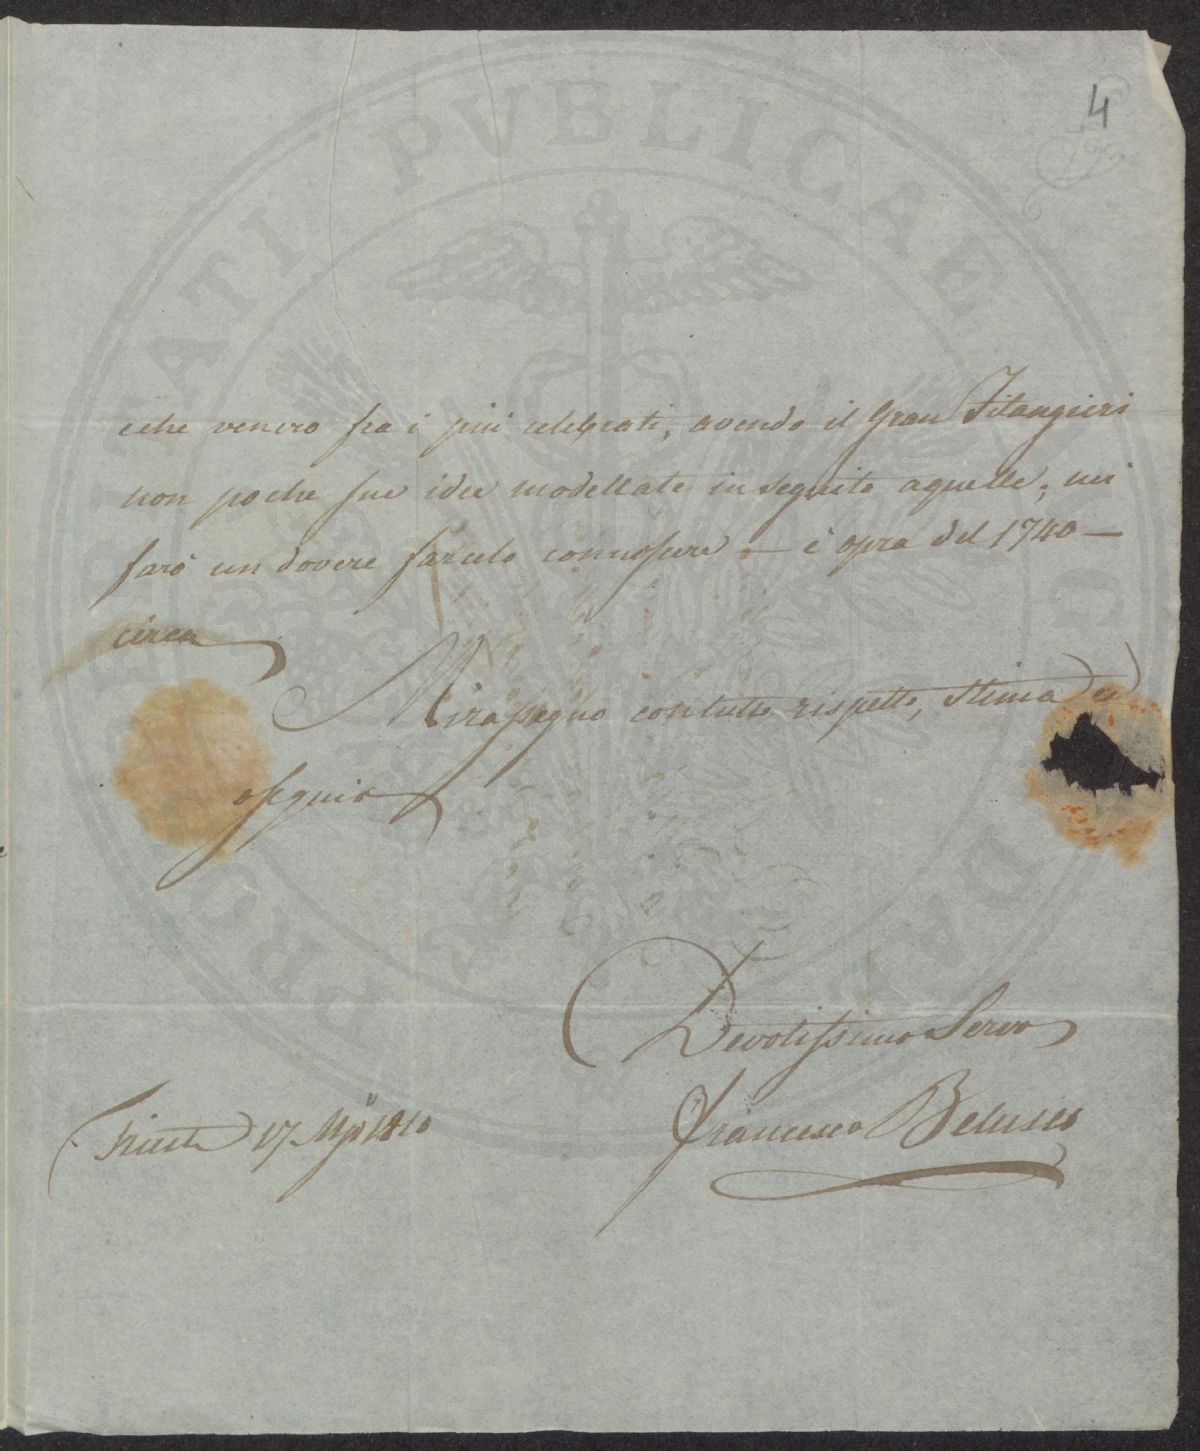 4
eche venero fra i più celebrati, avendo il Gran Filangieri
non poche sue idee modellate in seguito aquelle, mi
farò un dovere farcelo connoscere — è opra del 1740 —
circa
Mirassegno contutto rispetto, stima ed
ossequio
Devotissimo Servo
Francesco Belusco
Trieste 17 Mgio 1810
PROSPERITATI PVBLICAE